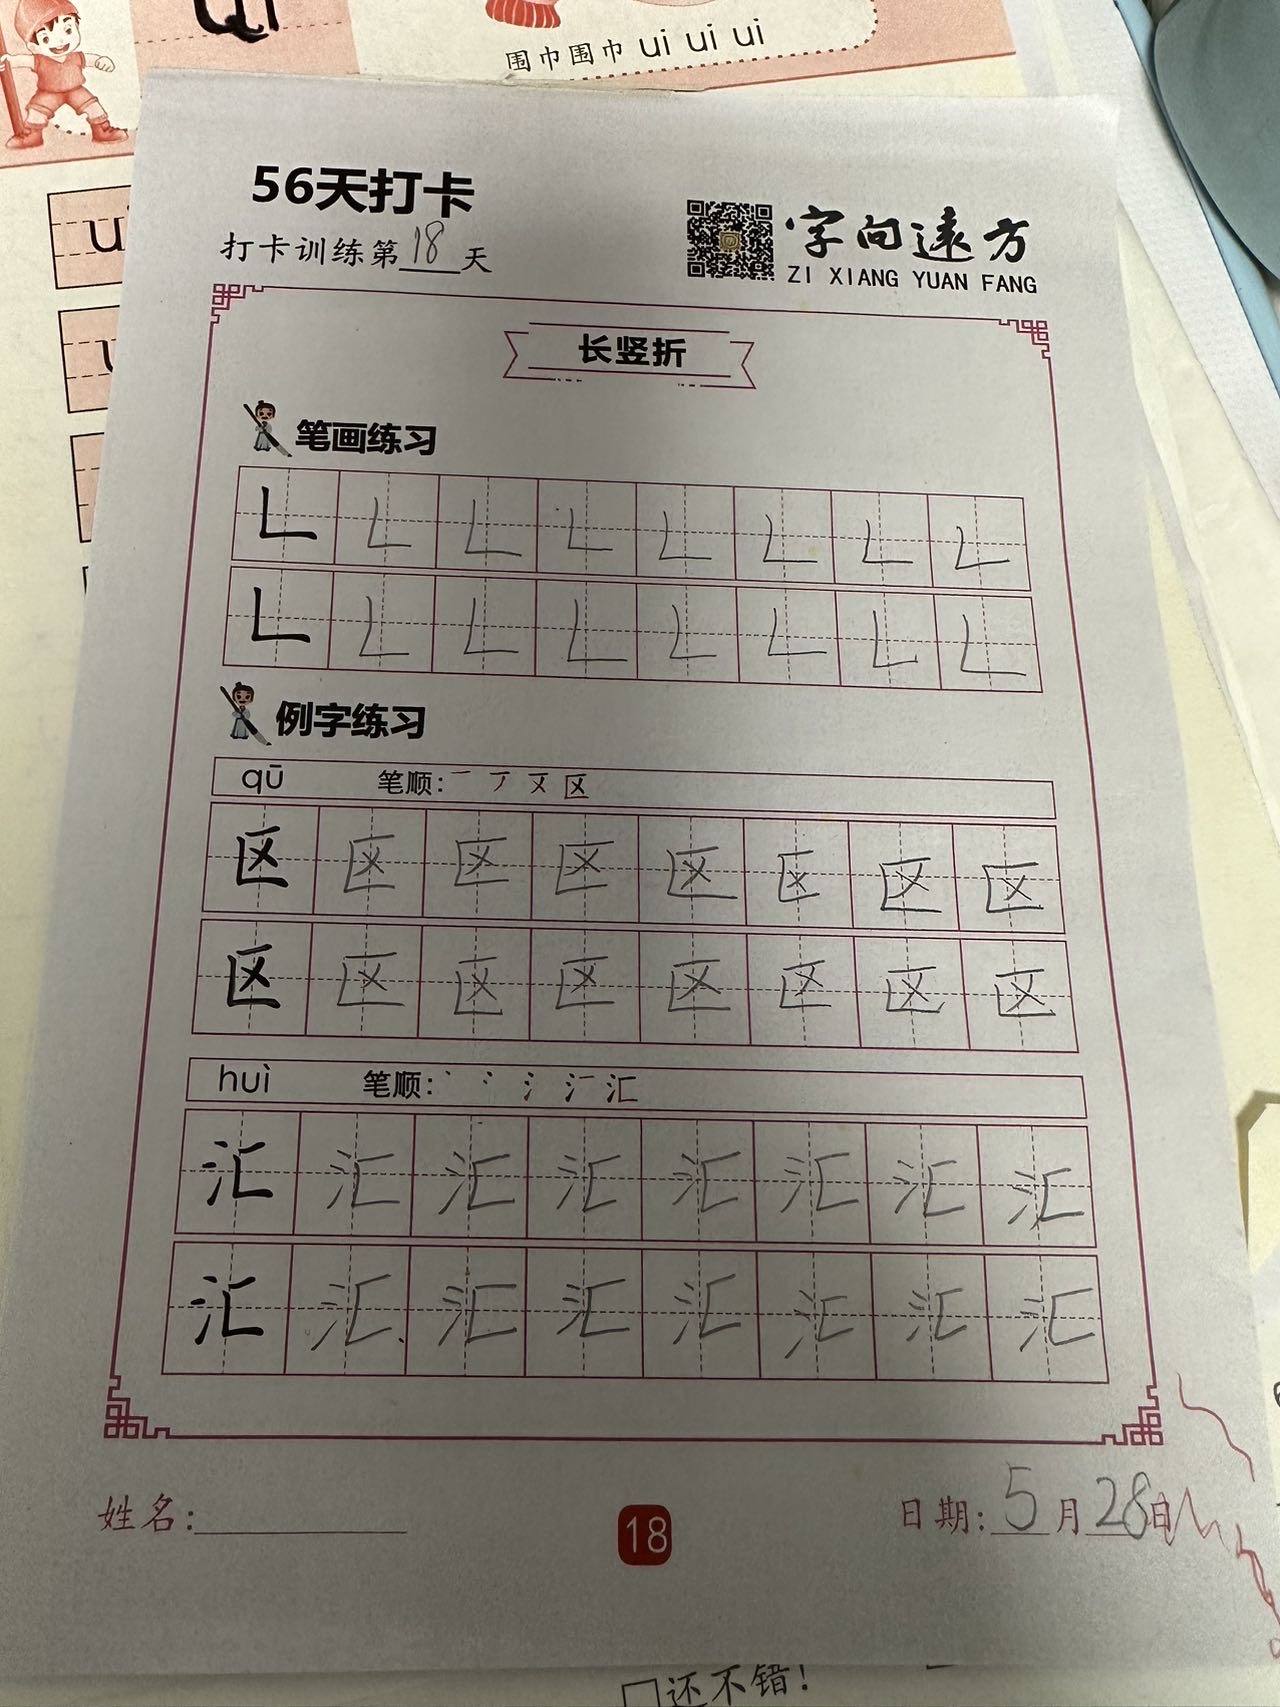 ui
围巾围巾 ui ui ui
56天打卡
打卡训练第18天
字向远方
ZI XIANG YUAN FANG
长竖折
笔画练习
𠃊 𠃊 𠃊 𠃊 𠃊 𠃊 𠃊 𠃊
𠃊 𠃊 𠃊 𠃊 𠃊 𠃊 𠃊 𠃊
例字练习
qū 笔顺: 一 丆 区
区 区 区 区 区 区 区 区
区 区 区 区 区 区 区 区
huì 笔顺: 丶 冫 氵 汇
汇 汇 汇 汇 汇 汇 汇 汇
汇 汇 汇 汇 汇 汇 汇 汇
姓名:
18
日期: 5月28日
还不错!